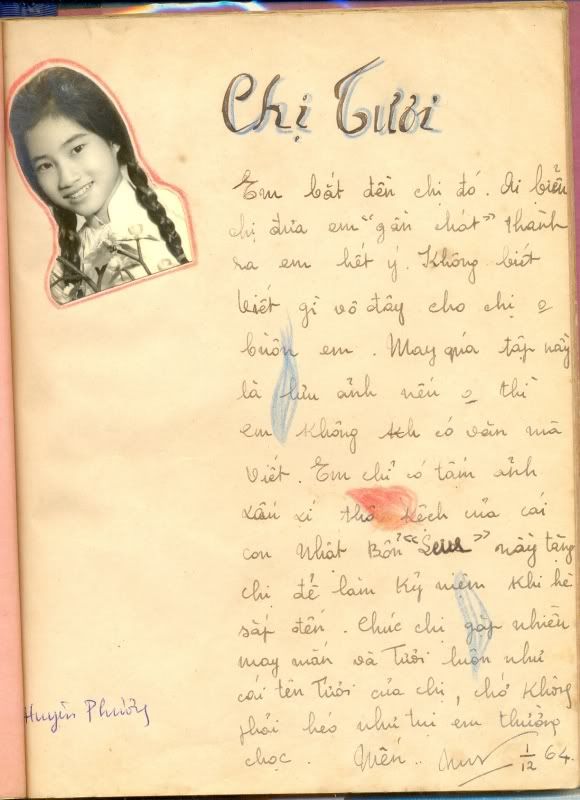 Chị Tươi
Em bắt đền chị đó. Ai biểu
chị đưa em "gần chót" thành
ra em hết ý. Không biết
viết gì vô đây cho chị o
buồn em. May quá tập này
là lưu ảnh nên o thì
em không có văn mà
viết. Em chỉ có tấm ảnh
xấu xí thô kệch của cái
con Nhật Bổn " " này tặng
chị để làm kỷ niệm khi hè
sắp đến. Chúc chị gặp nhiều
may mắn và Tươi luôn như
cái tên Tươi của chị, chớ không
phải héo như tụi em thường
chọc. Mến..
1/12 64.
Huyền Phương